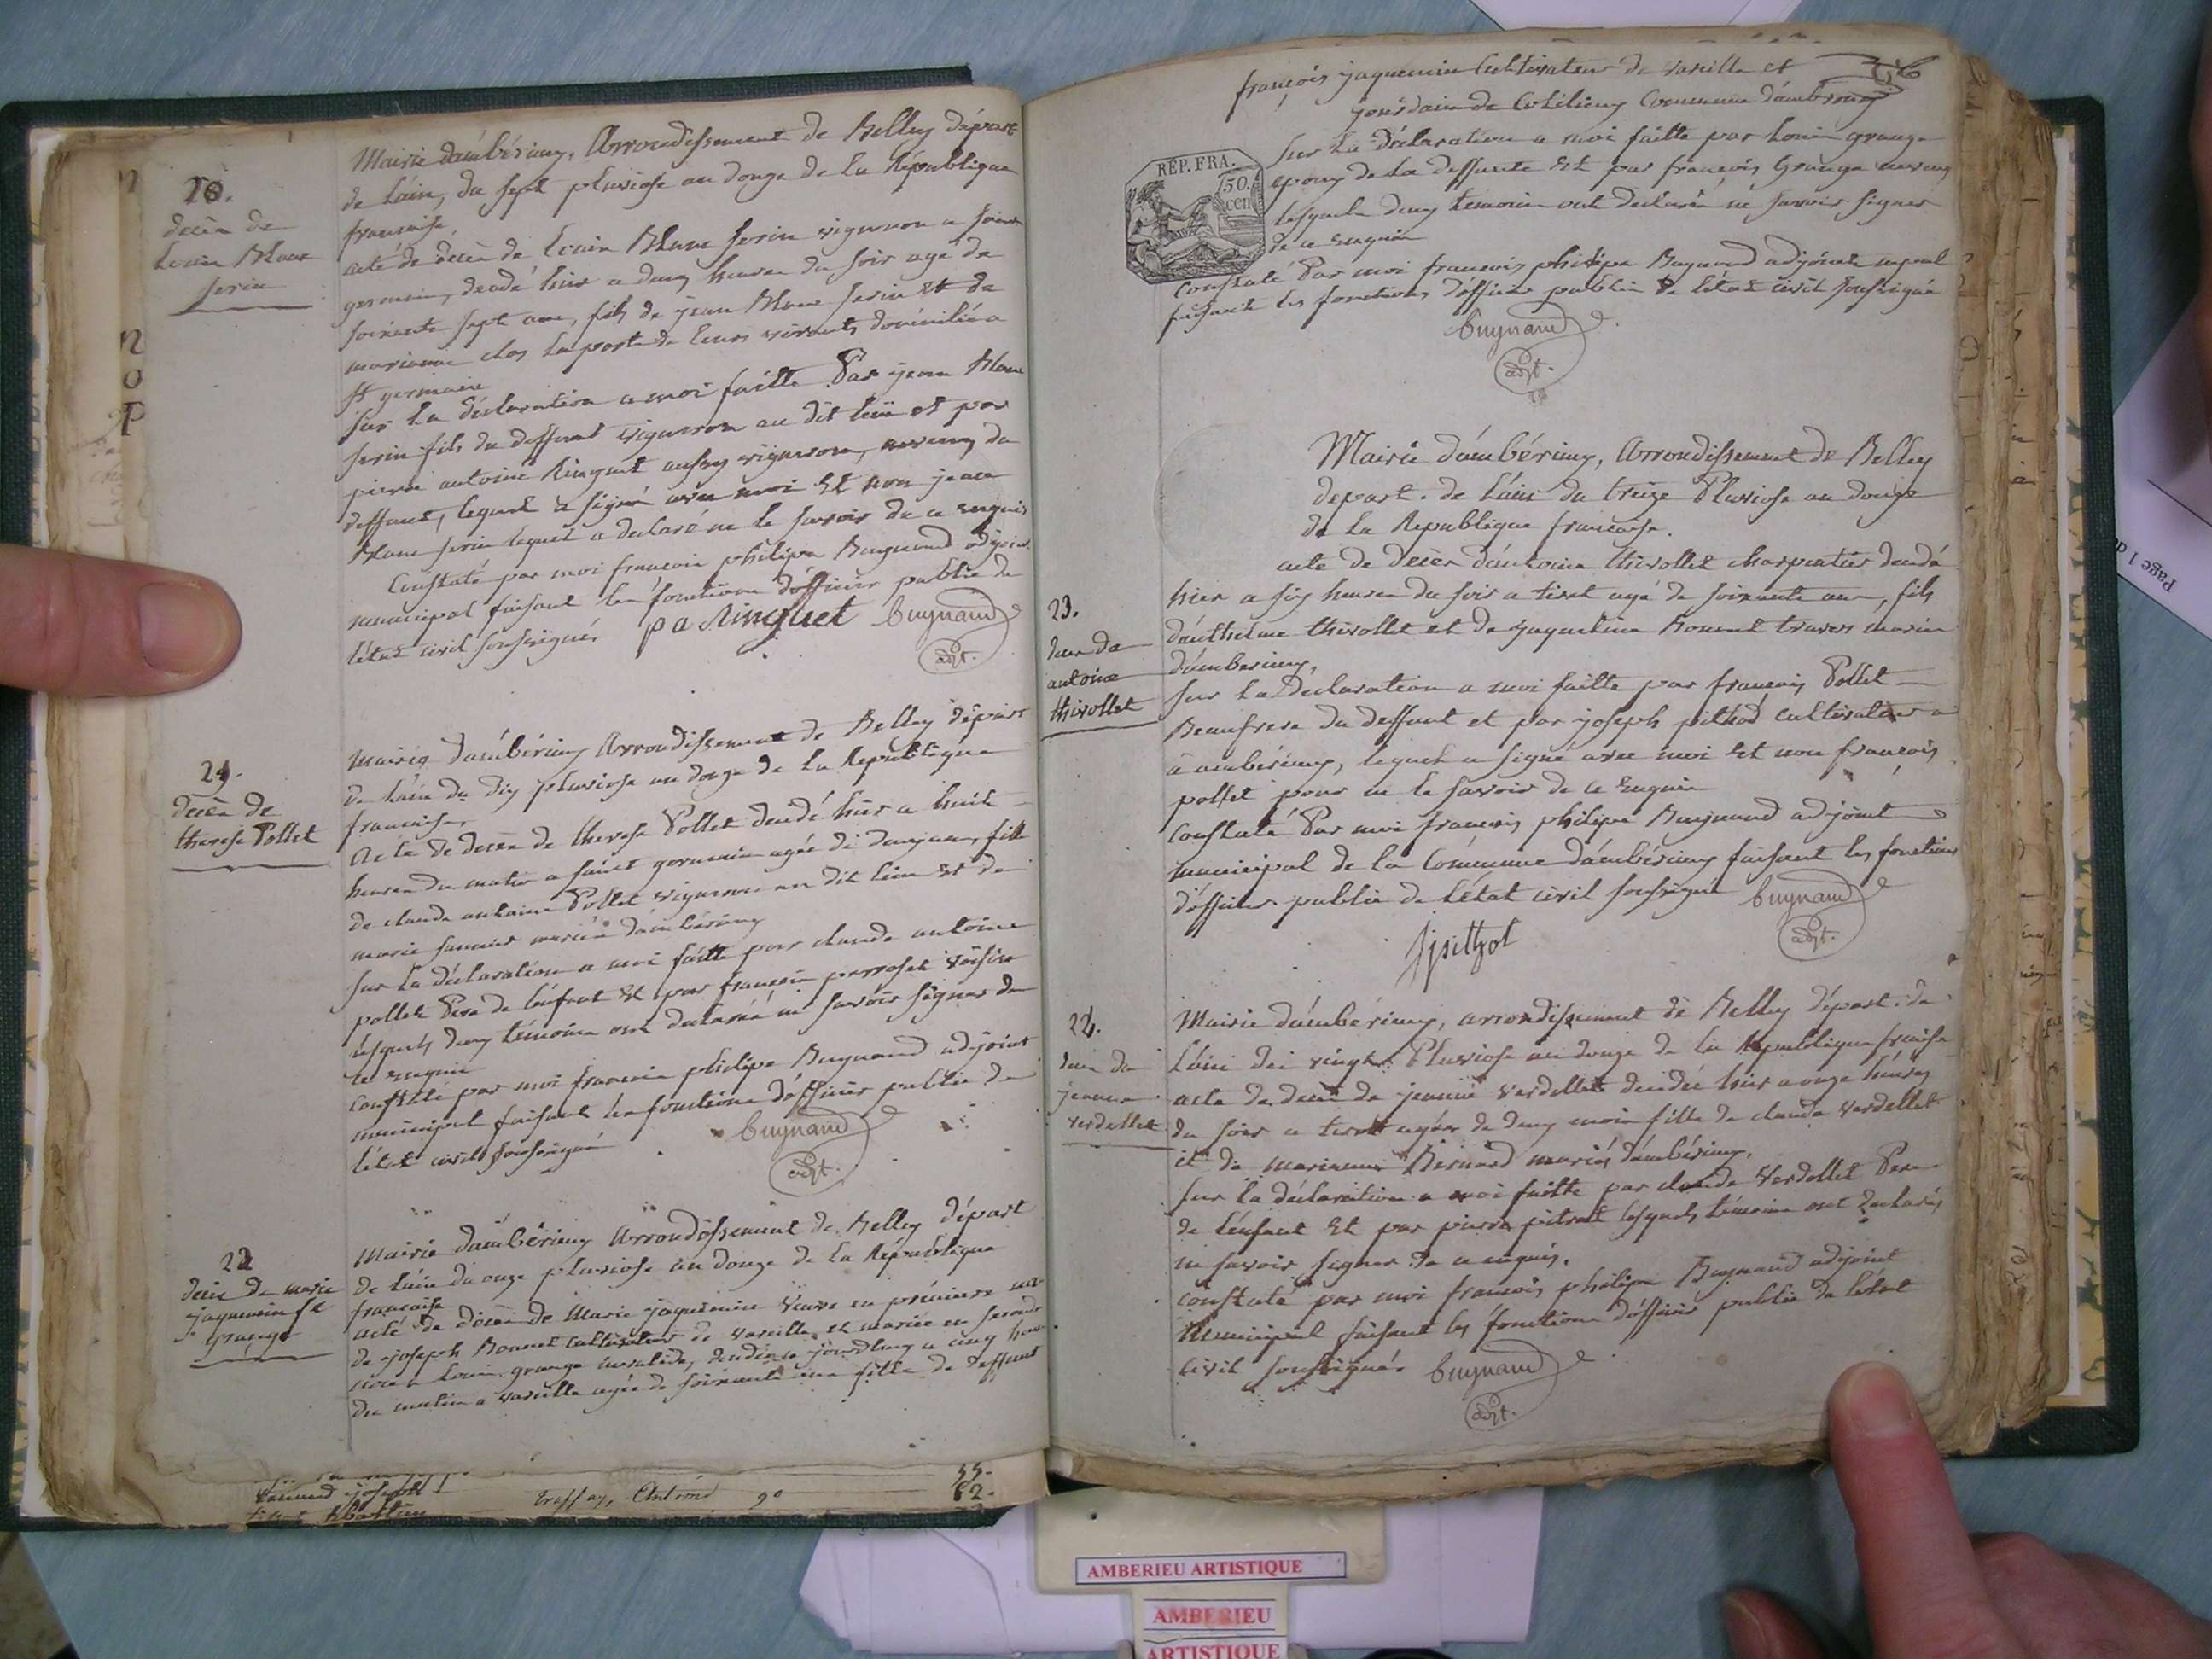 20.
décès de
Louis Blanc
serin
Mairie d'ambérieuy, Arrondissement de Belley départ
de l'ain, du sept pluviose an douze de la République
française,
acte de décès de Louis Blanc serin vigneron a saint
germain, décédé hier a deux heures du soir agé de
soixante sept ans, fils de jean Blanc serin et de
marianne clos laporte de leurs vivants domiciliés a
st germain
sur la déclaration a moi faitte Par jean Blanc
serin fils du deffunt vigneron au dit lieu et par
pierre antoine Ringuet aussy vigneron, neveux du
deffunt, lequel a signé avec moi et non jean
Blanc serin lequel a declaré ne le savoir de ce enquis
Constaté par moi francois philipe Bugnand adjoint
municipal faisant les fonctions d'officier public de
l'état civil soussigné. pa Ringuet bugnand
adjt.
21.
décès de
therese Pollet
Mairie d'ambérieuy Arrondissement de Belley départ
de l'ain du dix pluviose an douze de la République
francaise,
Acte de décès de therese Pollet décédé hier a huit
heures du matin a saint germain agée de deux ans, fille
de claude antoine Pollet vigneron au dit lieu et de
marie mariés d'ambérieuy
sur la déclaration a moi faitte par claude antoine
pollet Pere de l'enfant et par francois perroset voisin
lesquels deux témoins ont declaré ne savoir signer de
ce enquis
constaté par moi francois philipe Bugnand adjoint
municipal faisant les fonctions d'officier public de
l'état civil soussigné bugnand
adjt.
22
décès de marie
jaquemin fe
grange
Mairie d'ambérieuy Arrondissement de Belley départ
de l'ain du onze pluviose an douze de la République
francaise
acte de décès de Marie jaquemin veuve en premieres
de joseph Bonnet cultivateur de vareille et mariée en secondes
a Louis grange invalide, décédée a cinq heures
du matin a vareille agée de soixante ans fille de deffunt
françois jaquemin Cultivateur de vareille et
jourdain de Commune d'ambronay
REP. FRA.
50.
cen
sur la déclaration a moi faitte par Louis grange
epoux de la deffunte et par francois Grange neveux
lesquels deux temoins ont declaré ne savoir signer
de ce enquis
Constaté Par moi francois philipe Bugnand adjoint mpal
faisant les fonctions d'officier public de l'état civil soussigné
bugnand
adjt.
23.
décès de
antoine
thivollet
Mairie d'ambérieuy, Arrondissement de Belley
depart. de l'ain du treize Pluviose an douze
de la Republique francaise.
acte de décès d'antoine thivollet charpentier decedé
hier a six heures du soir a tiret agé de soixante ans, fils
d'anthelme thivollet et de jaqueline Bonnet travers mariés
d'amberieuy,
sur la Déclaration a moi faitte par françois Pollet
Beaufrere du deffunt et par joseph pithod cultivateur a
a ambérieuy, lequel a signé avec moi et non françois
pollet pour ne le savoir de ce enquis
Constaté Par moi francois philipe Bugnand adjoint
municipal de la Commune d'ambérieuy faisant les fonctions
d'officier public de l'état civil soussigné bugnand
adjt.
24.
décès de
jeanne
verdellet
Mairie d'ambérieuy, arrondissement de Belley départ. de
L'ain du vingt Pluviose an douze de la République fraise
acte de décès de jeanne verdellet decedée hier a onze heures
du soir a tiret agée de deux mois fille de claude verdellet
et de marianne Bernard mariés d'ambérieuy,
sur la déclaration a moi faitte par claude verdellet Pere
de l'enfant et par pierre lesquels témoins ont declarés
ne savoir signer de ce enquis,
constaté par moi francois philipe Bugnand adjoint
Municipal faisant les fonctions d'officier public de l'état
civil soussigné. bugnand
adjt.
55.
62.
AMBERIEU ARTISTIQUE
AMBERIEU
ARTISTIQUE
Page 1